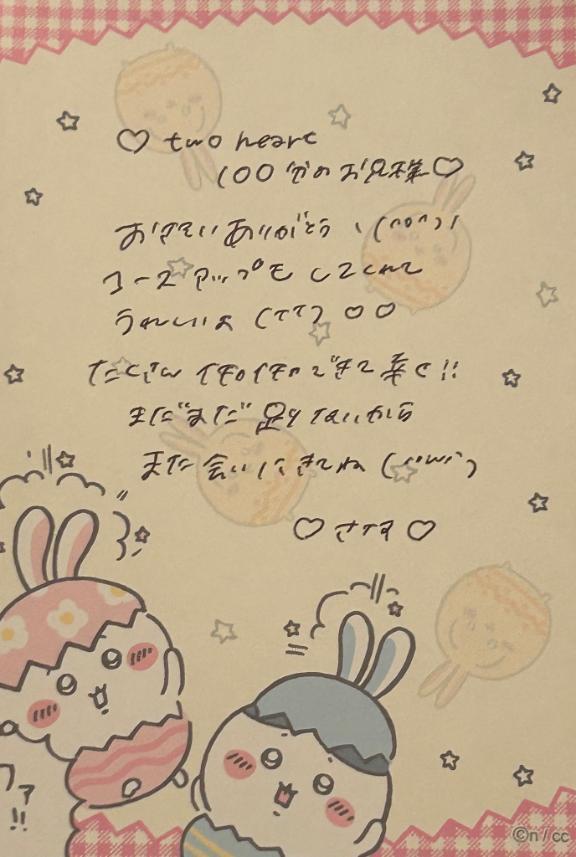 ♡ two heart
100分のお兄様♡
おさそいありがとう、(^o^)!
コースアップも してくれて
うれしいよ (TT) ♡♡
たくさん イチャイチャできて幸せ!!
まだまだ 足りないから
また 会いにきてね (´ω`)
♡ さすす ♡
!!
©n/cc